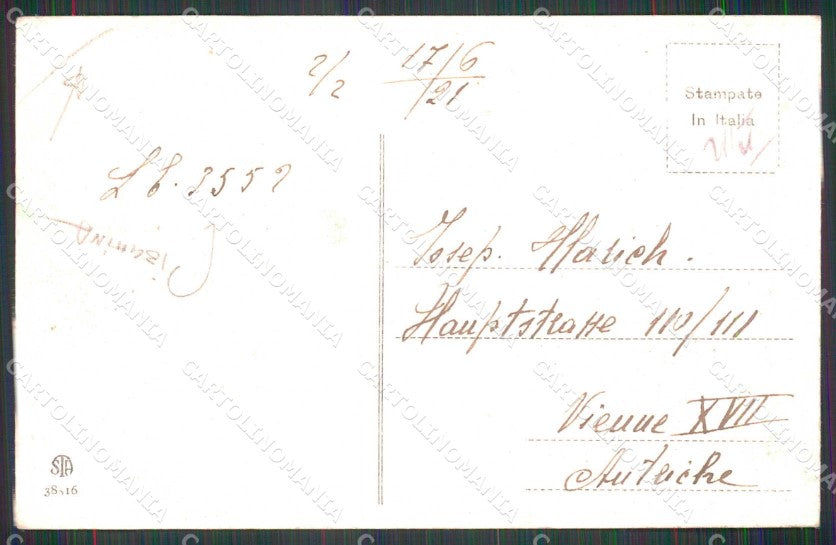 2/2 17/6
/21
Stampate
In Italia
L E. 3552
Josep. Hlavich.
Hauptstrasse 110/111
Vienne XVII
Autriche
STA
38316
CARTOLINOMANIA